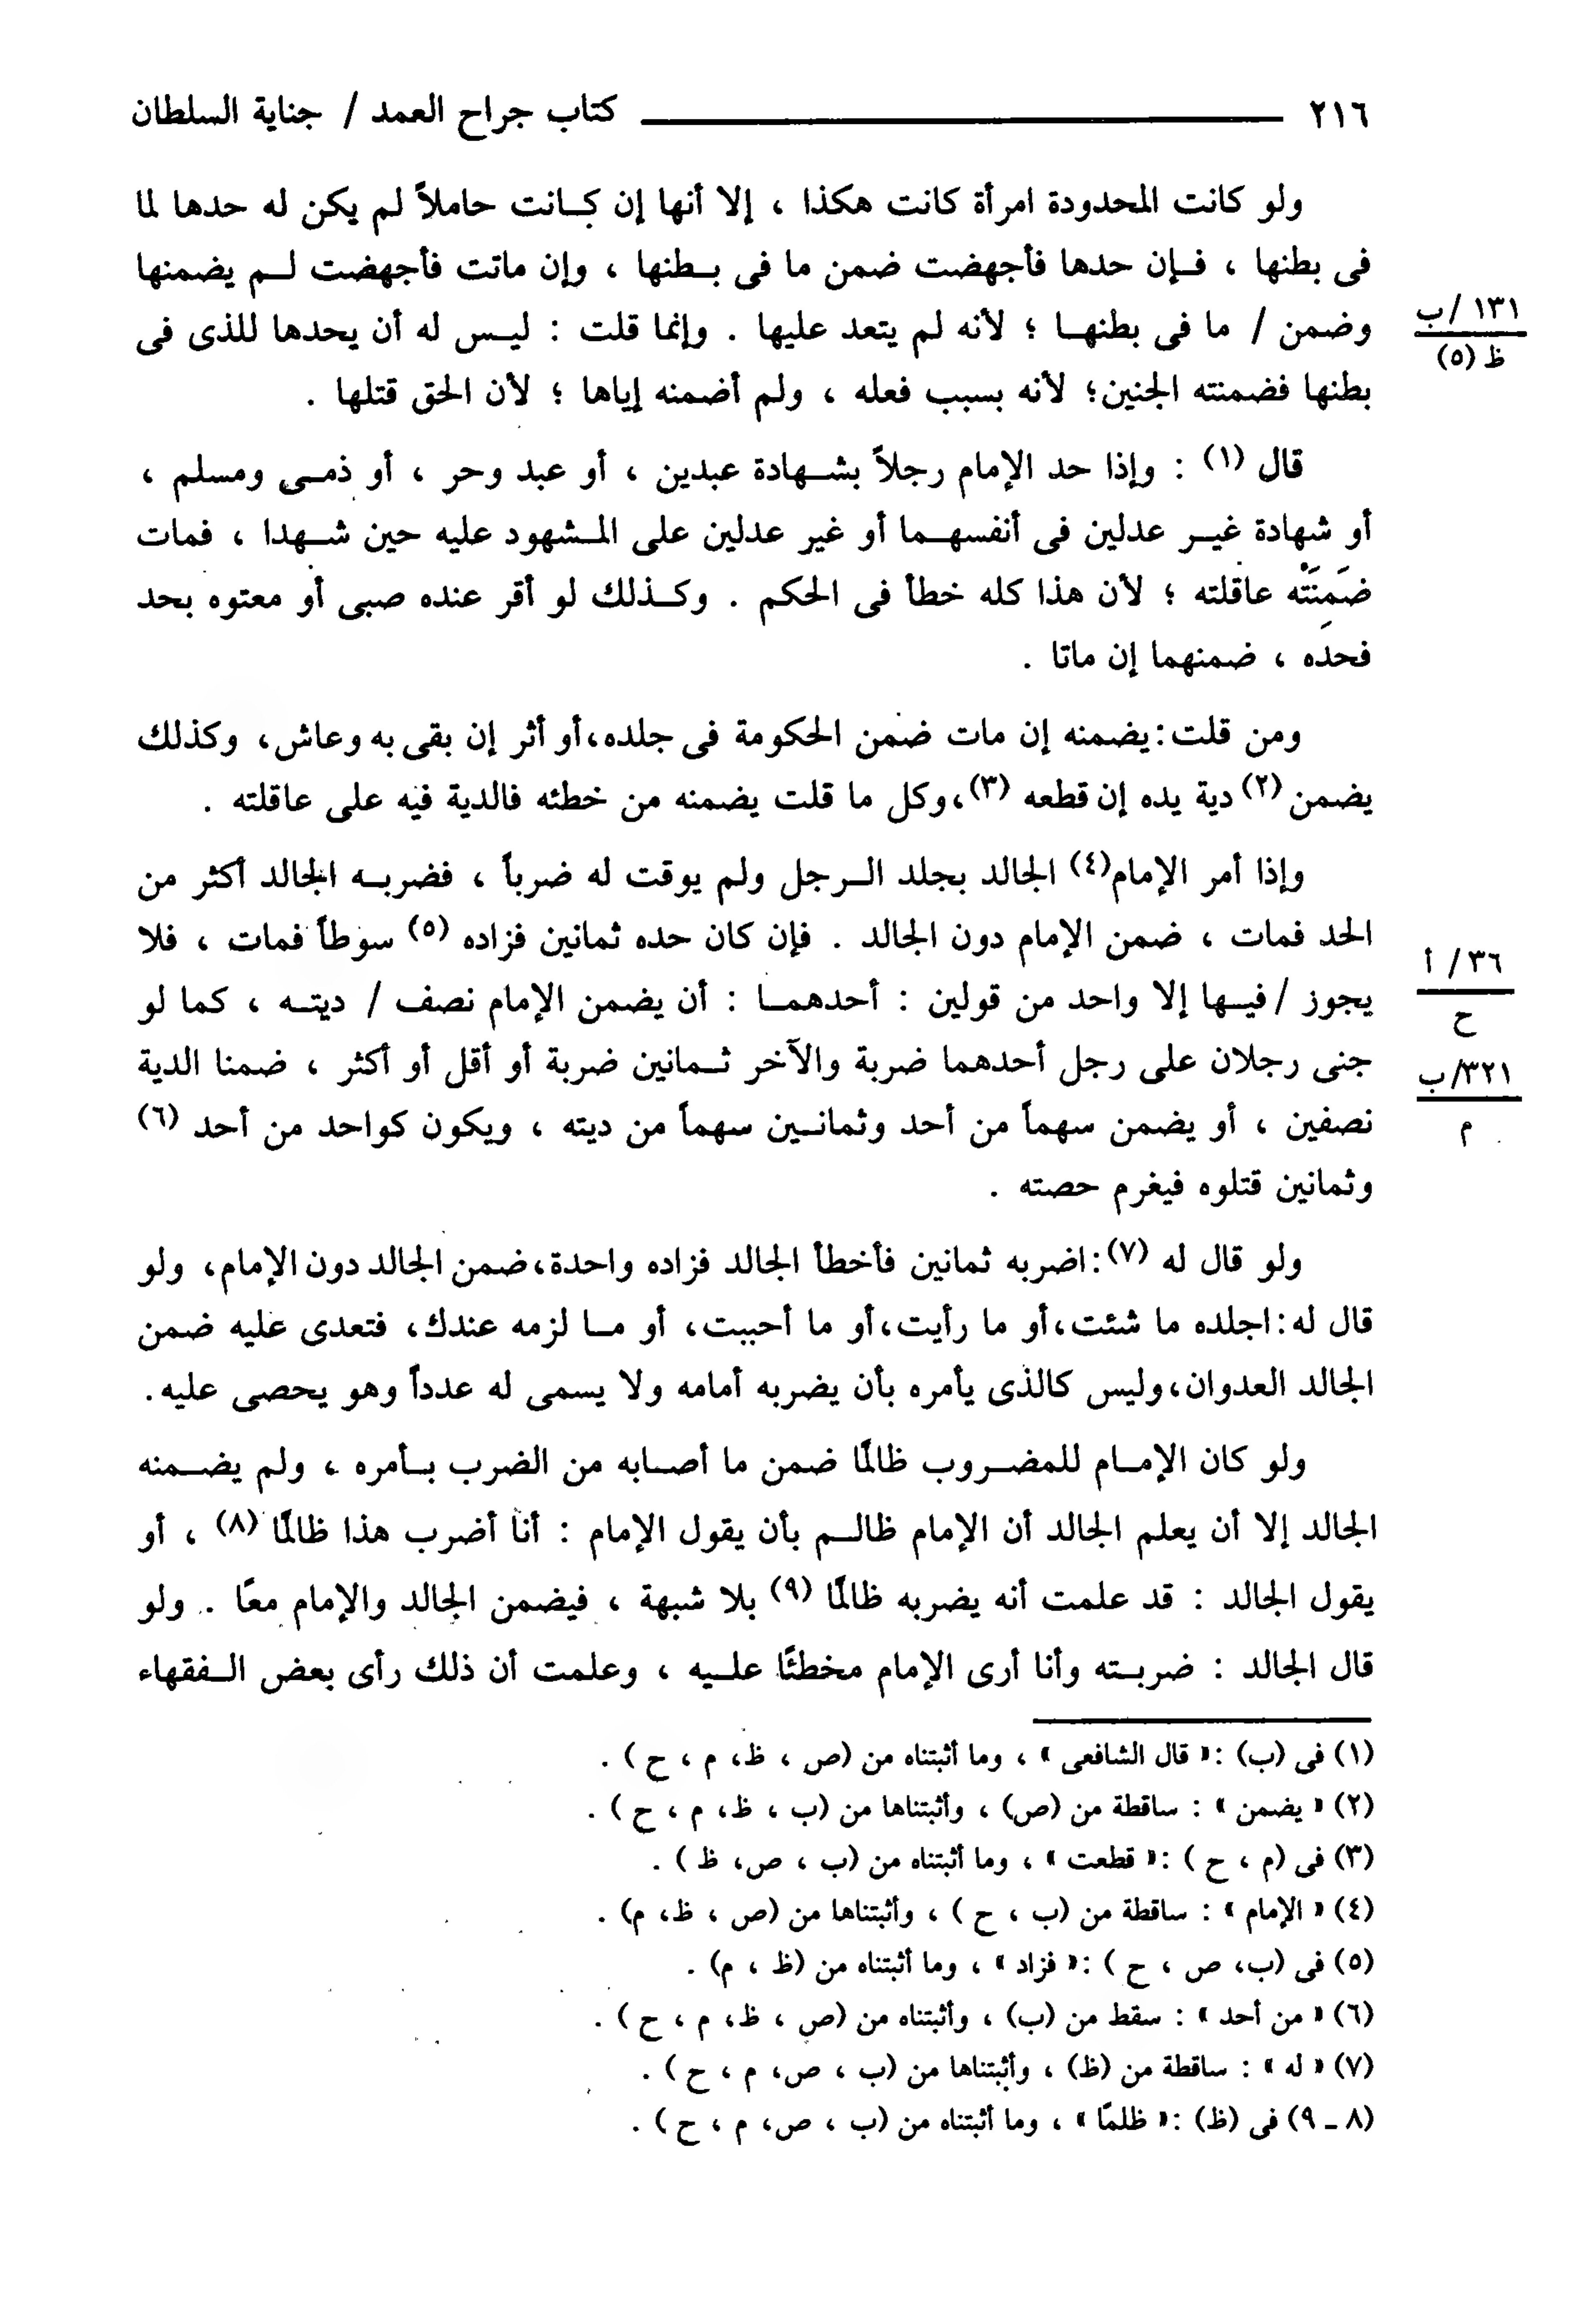 ٢١٦ كتاب جراح العمد / جناية السلطان
ولو كانت المحدودة امرأة كانت هكذا ، إلا أنها إن كانت حاملاً لم يكن له حدها لما
فى بطنها ، فإن حدها فأجهضت ضمن ما فى بطنها ، وإن ماتت فأجهضت لم يضمنها
وضمن / ما فى بطنها ؛ لأنه لم يتعد عليها . وإنما قلت : ليس له أن يحدها للذى فى
١٣١ /ب
ظ (٥)
بطنها فضمنته الجنين؛ لأنه بسبب فعله ، ولم أضمنه إياها ؛ لأن الحق قتلها .
قال (١) : وإذا حد الإمام رجلاً بشهادة عبدين ، أو عبد وحر ، أو ذمى ومسلم ،
أو شهادة غير عدلين فى أنفسهما أو غير عدلين على المشهود عليه حين شهدا ، فمات
ضَمِنَتْه عاقلته ؛ لأن هذا كله خطأ فى الحكم . وكذلك لو أقر عنده صبى أو معتوه بحد
فحدَه ، ضمنهما إن ماتا .
ومن قلت:يضمنه إن مات ضمن الحكومة فى جلده،أو أثر إن بقى به وعاش، وكذلك
يضمن (٢) دية يده إن قطعه (٣)،وكل ما قلت يضمنه من خطئه فالدية فيه على عاقلته .
وإذا أمر الإمام(٤) الجالد بجلد الرجل ولم يوقت له ضرباً ، فضربه الجالد أكثر من
الحد فمات ، ضمن الإمام دون الجالد . فإن كان حده ثمانين فزاده (٥) سوطاً فمات ، فلا
يجوز / فيها إلا واحد من قولين : أحدهما : أن يضمن الإمام نصف / ديته ، كما لو
٣٦/ أ
ح
جنى رجلان على رجل أحدهما ضربة والآخر ثمانين ضربة أو أقل أو أكثر ، ضمنا الدية
٣٢١/ب
م
نصفين ، أو يضمن سهماً من أحد وثمانين سهماً من ديته ، ويكون كواحد من أحد (٦)
وثمانين قتلوه فيغرم حصته .
ولو قال له (٧):اضربه ثمانين فأخطأ الجالد فزاده واحدة،ضمن الجالد دون الإمام، ولو
قال له:اجلده ما شئت،أو ما رأيت،أو ما أحببت، أو ما لزمه عندك، فتعدى عليه ضمن
الجالد العدوان،وليس كالذى يأمره بأن يضربه أمامه ولا يسمى له عدداً وهو يحصى عليه.
ولو كان الإمام للمضروب ظالمًا ضمن ما أصابه من الضرب بأمره ، ولم يضمنه
الجالد إلا أن يعلم الجالد أن الإمام ظالم بأن يقول الإمام : أنا أضرب هذا ظالمًا (٨) ، أو
يقول الجالد : قد علمت أنه يضربه ظالمًا (٩) بلا شبهة ، فيضمن الجالد والإمام معًا . ولو
قال الجالد : ضربته وأنا أرى الإمام مخطئًا عليه ، وعلمت أن ذلك رأى بعض الفقهاء
(١) فى (ب) :« قال الشافعى » ، وما أثبتناه من (ص ، ظ، م ، ح ) .
(٢) « يضمن » : ساقطة من (ص) ، وأثبتناها من (ب ، ظ، م ، ح ) .
(٣) فى (م ، ح ) :« قطعت » ، وما أثبتناه من (ب ، ص، ظ ) .
(٤) « الإمام » : ساقطة من (ب ، ح ) ، وأثبتناها من (ص ، ظ، م) .
(٥) فى (ب، ص ، ح ) :« فزاد » ، وما أثبتناه من (ظ ، م) .
(٦) « من أحد » : سقط من (ب) ، وأثبتناه من (ص ، ظ، م ، ح ) .
(٧) « له » : ساقطة من (ظ) ، وأثبتناها من (ب ، ص، م ، ح ) .
(٨ - ٩) فى (ظ) :« ظلمًا » ، وما أثبتناه من (ب ، ص، م ، ح ) .